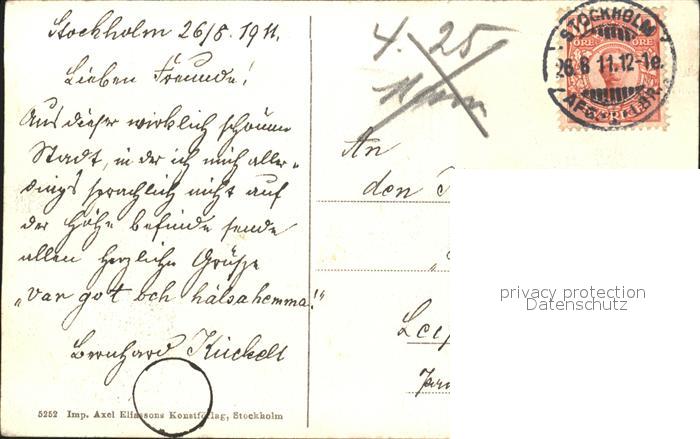 Stockholm 26/8. 1911.
Lieben Freunde!
Aus dieser wirklich schönen
Stadt, in der ich mich aller-
dings sprachlich nicht auf
der Höhe befinde sende
allen herzliche Grüsse
„var got och hälsa hemma!"
Bernhard
5252 Imp. Axel Eliassons Konstförlag, Stockholm
4. 25
An
den
STOCKHOLM
26.8 11.12-1e.
ÖRE ÖRE
privacy protection
Datenschutz